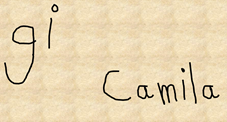 gi
Camila